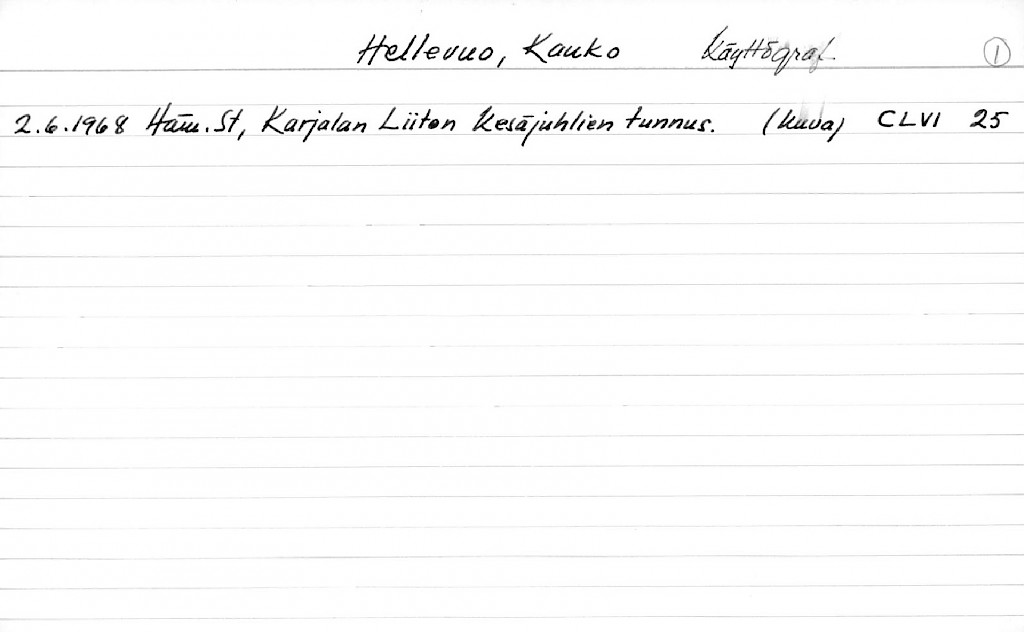 Hellevuo, Kauko Käyttögraf. 1
2.6.1968 Häm. St, Karjalan Liiton Kesäjuhlien tunnus. (Kuva) CLVI 25